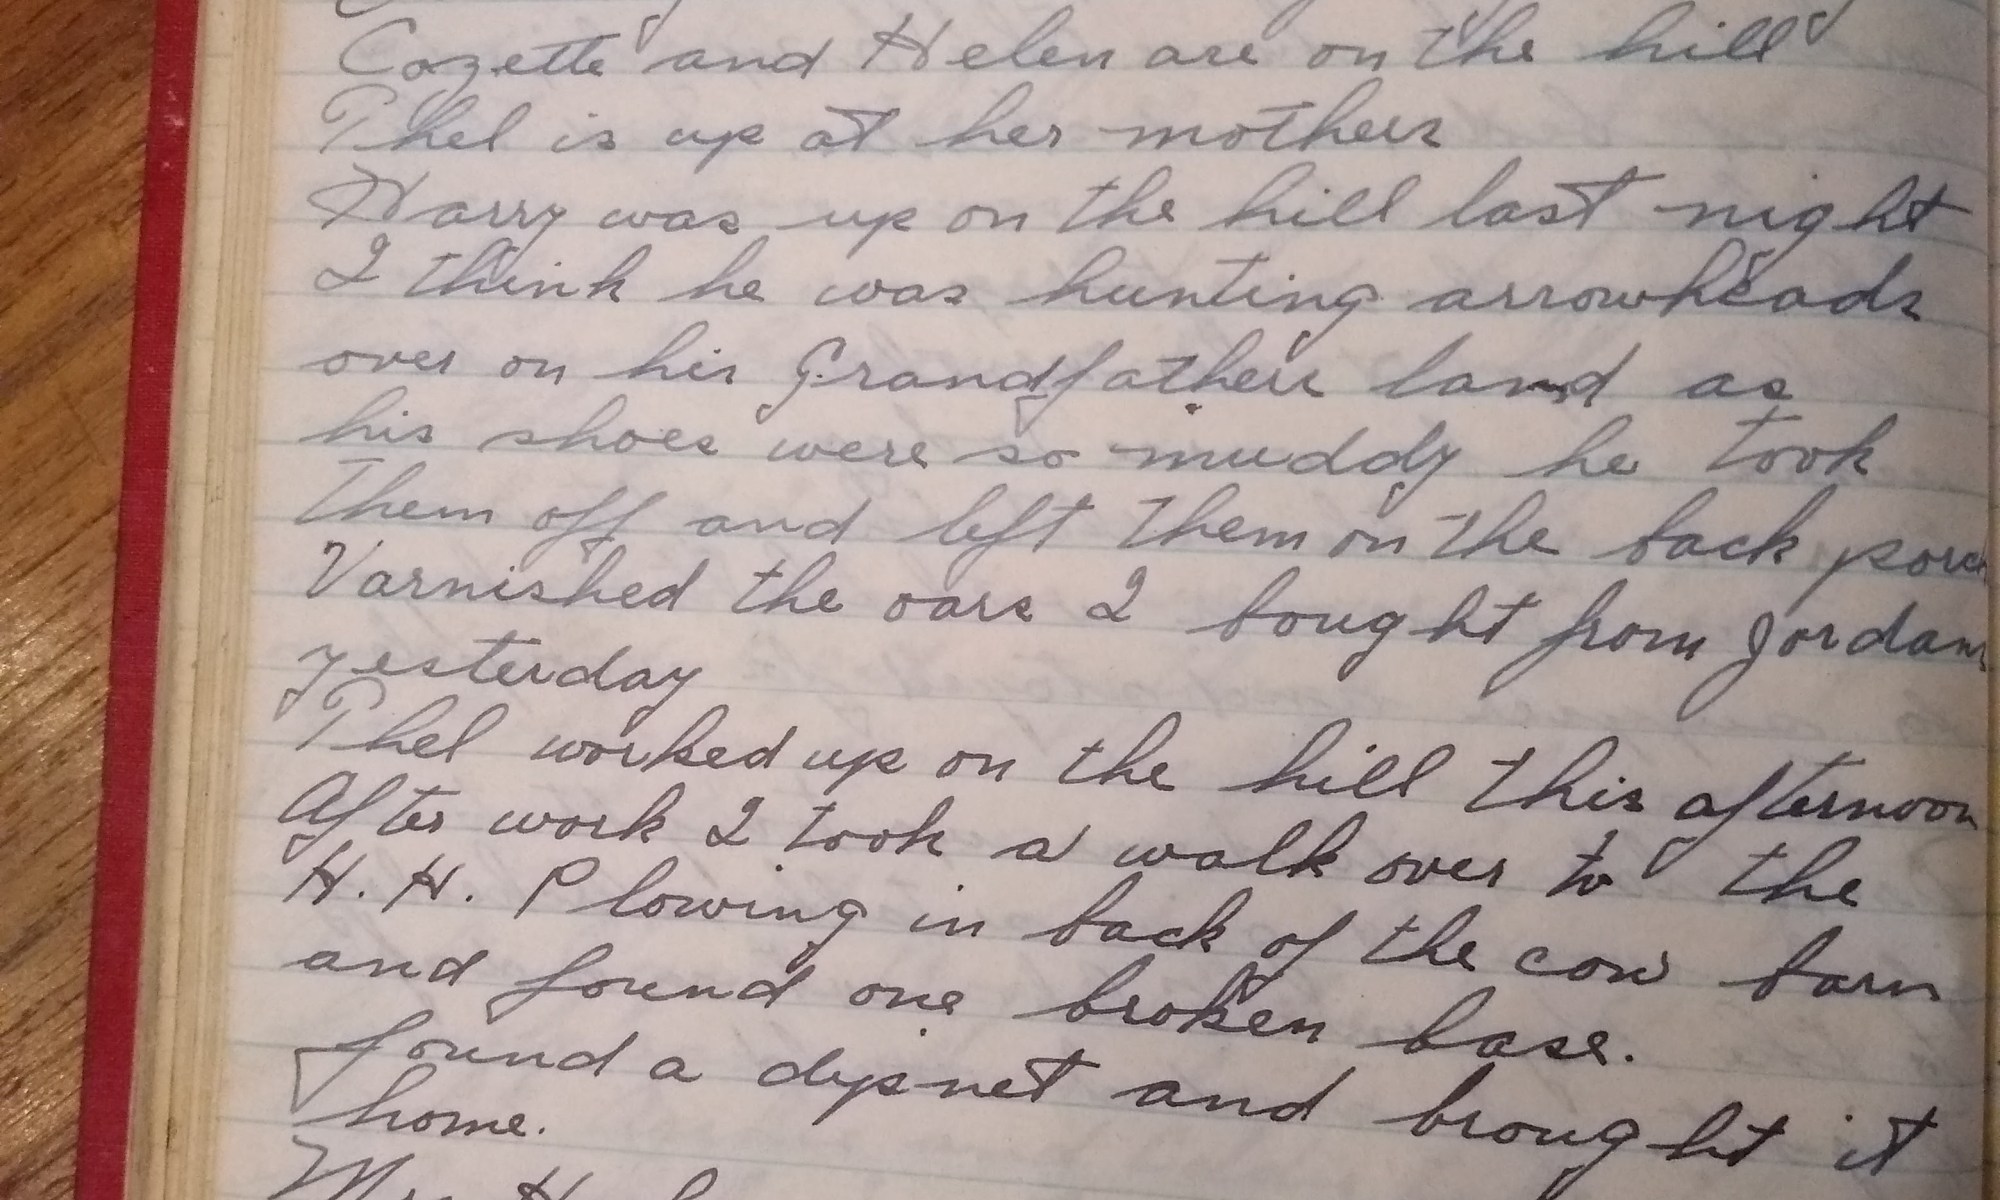 Cozette and Helen are on the hill
Phel is up at her mothers
Harry was up on the hill last night
I think he was hunting arrowheads
over on his Grandfathers land as
his shoes were so muddy he took
them off and left them on the back porch
Varnished the oars I bought from Jordans
yesterday
Phel worked up on the hill this afternoon
After work I took a walk over to the
H. H. Plowing in back of the cow barn
and found one broken base.
found a dipnet and brought it
home.